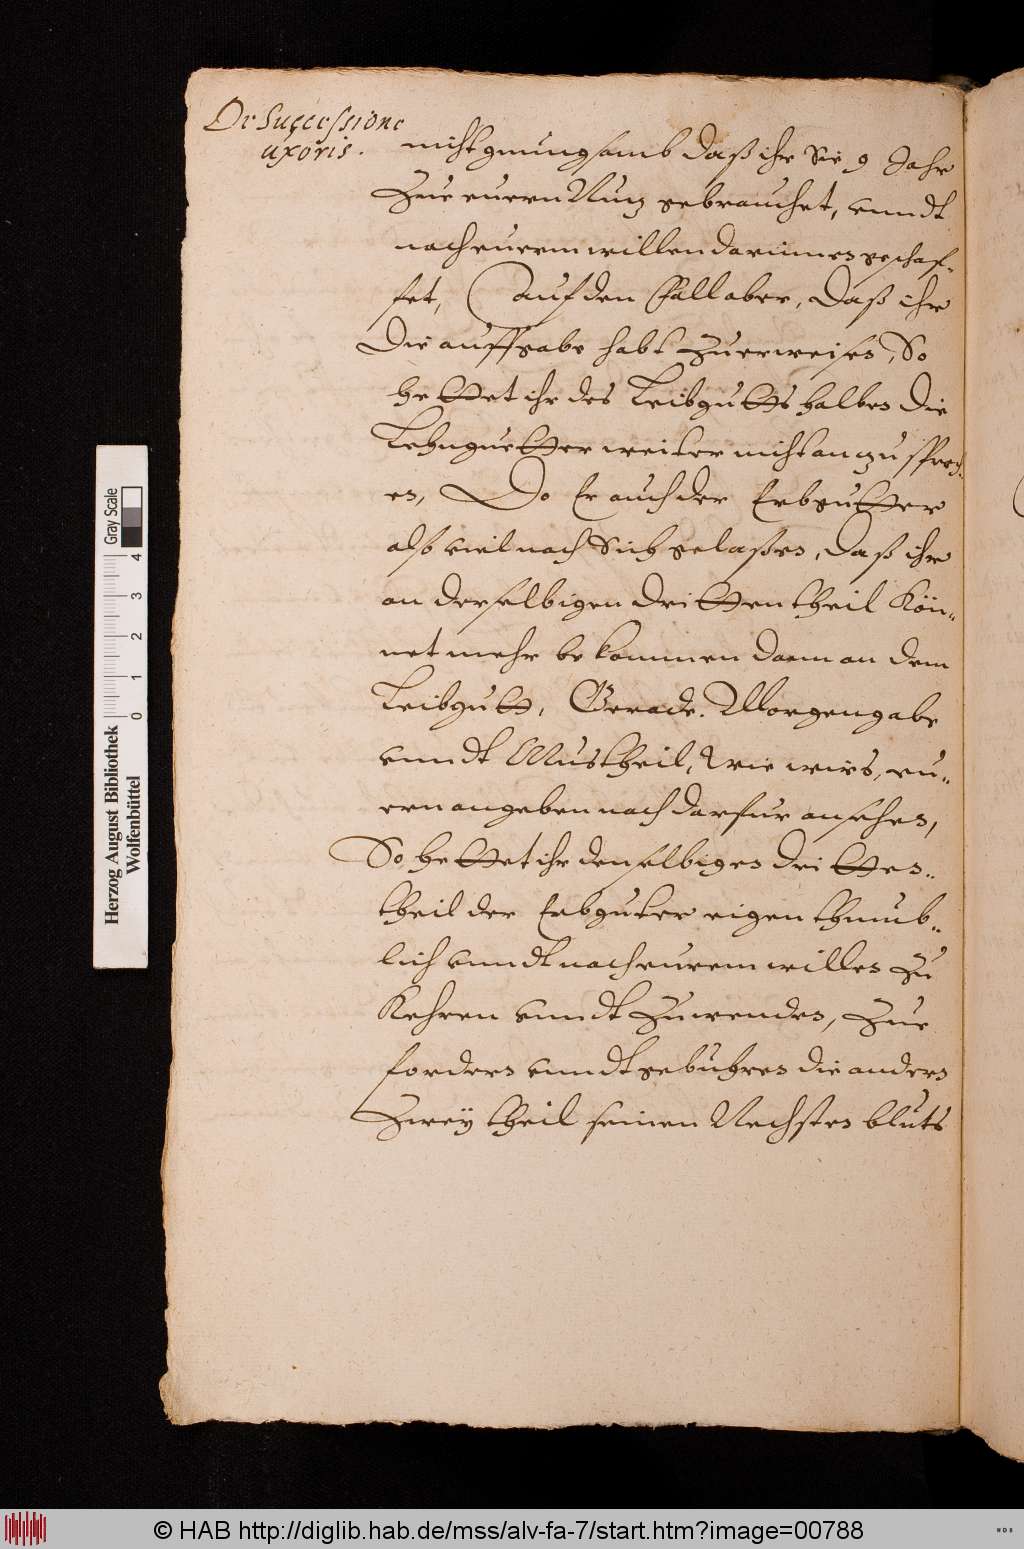 De Successione
uxoris.
nicht gnungsamb daß ihr Sie 9 Jahr
Zue euern Nutz gebrauchet, vnndt
nach euerm willen darinnen geschaf-
fet, Auf den Fall aber, Daß ihr
Die auffgabe habt Zuerweisen, So
hettet ihr des Leibgutts halben die
Lehnguetter weiter nicht anzusprech-
en, Do Er auch der Erbgutter
alß viel nach Sich gelaßen, daß ihr
an derselbigen dritten theil Kön-
net mehr bekommen dann an dem
Leibgutt, Gerade. Morgengabe
vnndt Mustheil, Wie wirs, eu-
ern angeben nach darfur ansehen,
So hettet ihr denselbigen dritten-
theil der Erbguter eigenthumb-
lich vnndt nach eurem willen Zu
Kehren vnndt Zuwenden, Zue
fordern vnndt gebuhren die andern
Zwey theil seinen Nechsten bluts
Herzog August Bibliothek
Wolfenbüttel
0 1 2 3 4
Gray Scale
© HAB http://diglib.hab.de/mss/alv-fa-7/start.htm?image=00788